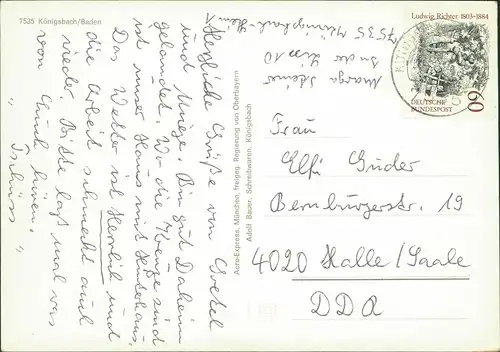 7535 Königsbach/Baden
Herzliche Grüße von Gretel
und Mieze. Bin gut Daheim
gelandet. Wo die Kreuze sind
ist unser Haus mit Hinterhaus.
Das Wetter ist Herbst und
die Arbeit schmeckt auch
wieder. Bitte laß mal was
von Euch hören.
" Tschüss "
Aero-Express, München, freigeg. Regierung von Oberbayern
Adolf Bauer, Schreibwaren, Königsbach
Marga Steiner
In der 10
7535 Königsbach-Stein 1
Ludwig Richter 1803-1884
DEUTSCHE
BUNDESPOST
60
Frau
Elfi Guder
Bernburgerstr. 19
4020 Halle/Saale
DDR